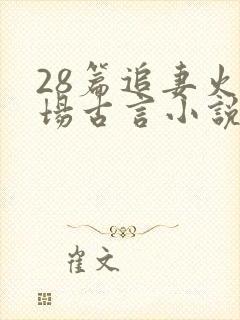 28篇追妻火
場古言小說
崔文